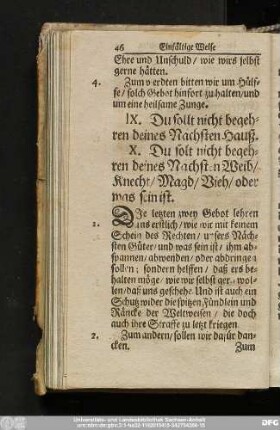 46 Einfältige Weise
Ehre und Unschuld / wie wirs selbst
gerne hätten.
4. Zum vierdten bitten wir um Hülf-
fe / solch Gebot hinfort zu halten / und
um eine heilsame Zunge.
IX. Du sollt nicht begeh-
ren deines Nachsten Hauß.
X. Du solt nicht begeh-
ren deines Nachsten Weib /
Knecht / Magd / Vieh / oder
was sein ist.
1. DJe letzten zwey Gebot lehren
uns erstlich / wie wir mit feinem
Schein des Rechten / unsers Näch-
sten Güter / und was sein ist / ihm ab-
spannen / abwenden / oder abdringen
sollen; sondern helffen / daß ers be-
halten möge / wie wir selbst ger- wol-
len / daß uns geschehe. Und ist auch ein
Schutz wider die spitzen Fündlein und
Räncke der Weltweisen / die doch
auch ihre Straffe zu letzt kriegen.
2. Zum andern / sollen wir dafür dan-
cken. Zum